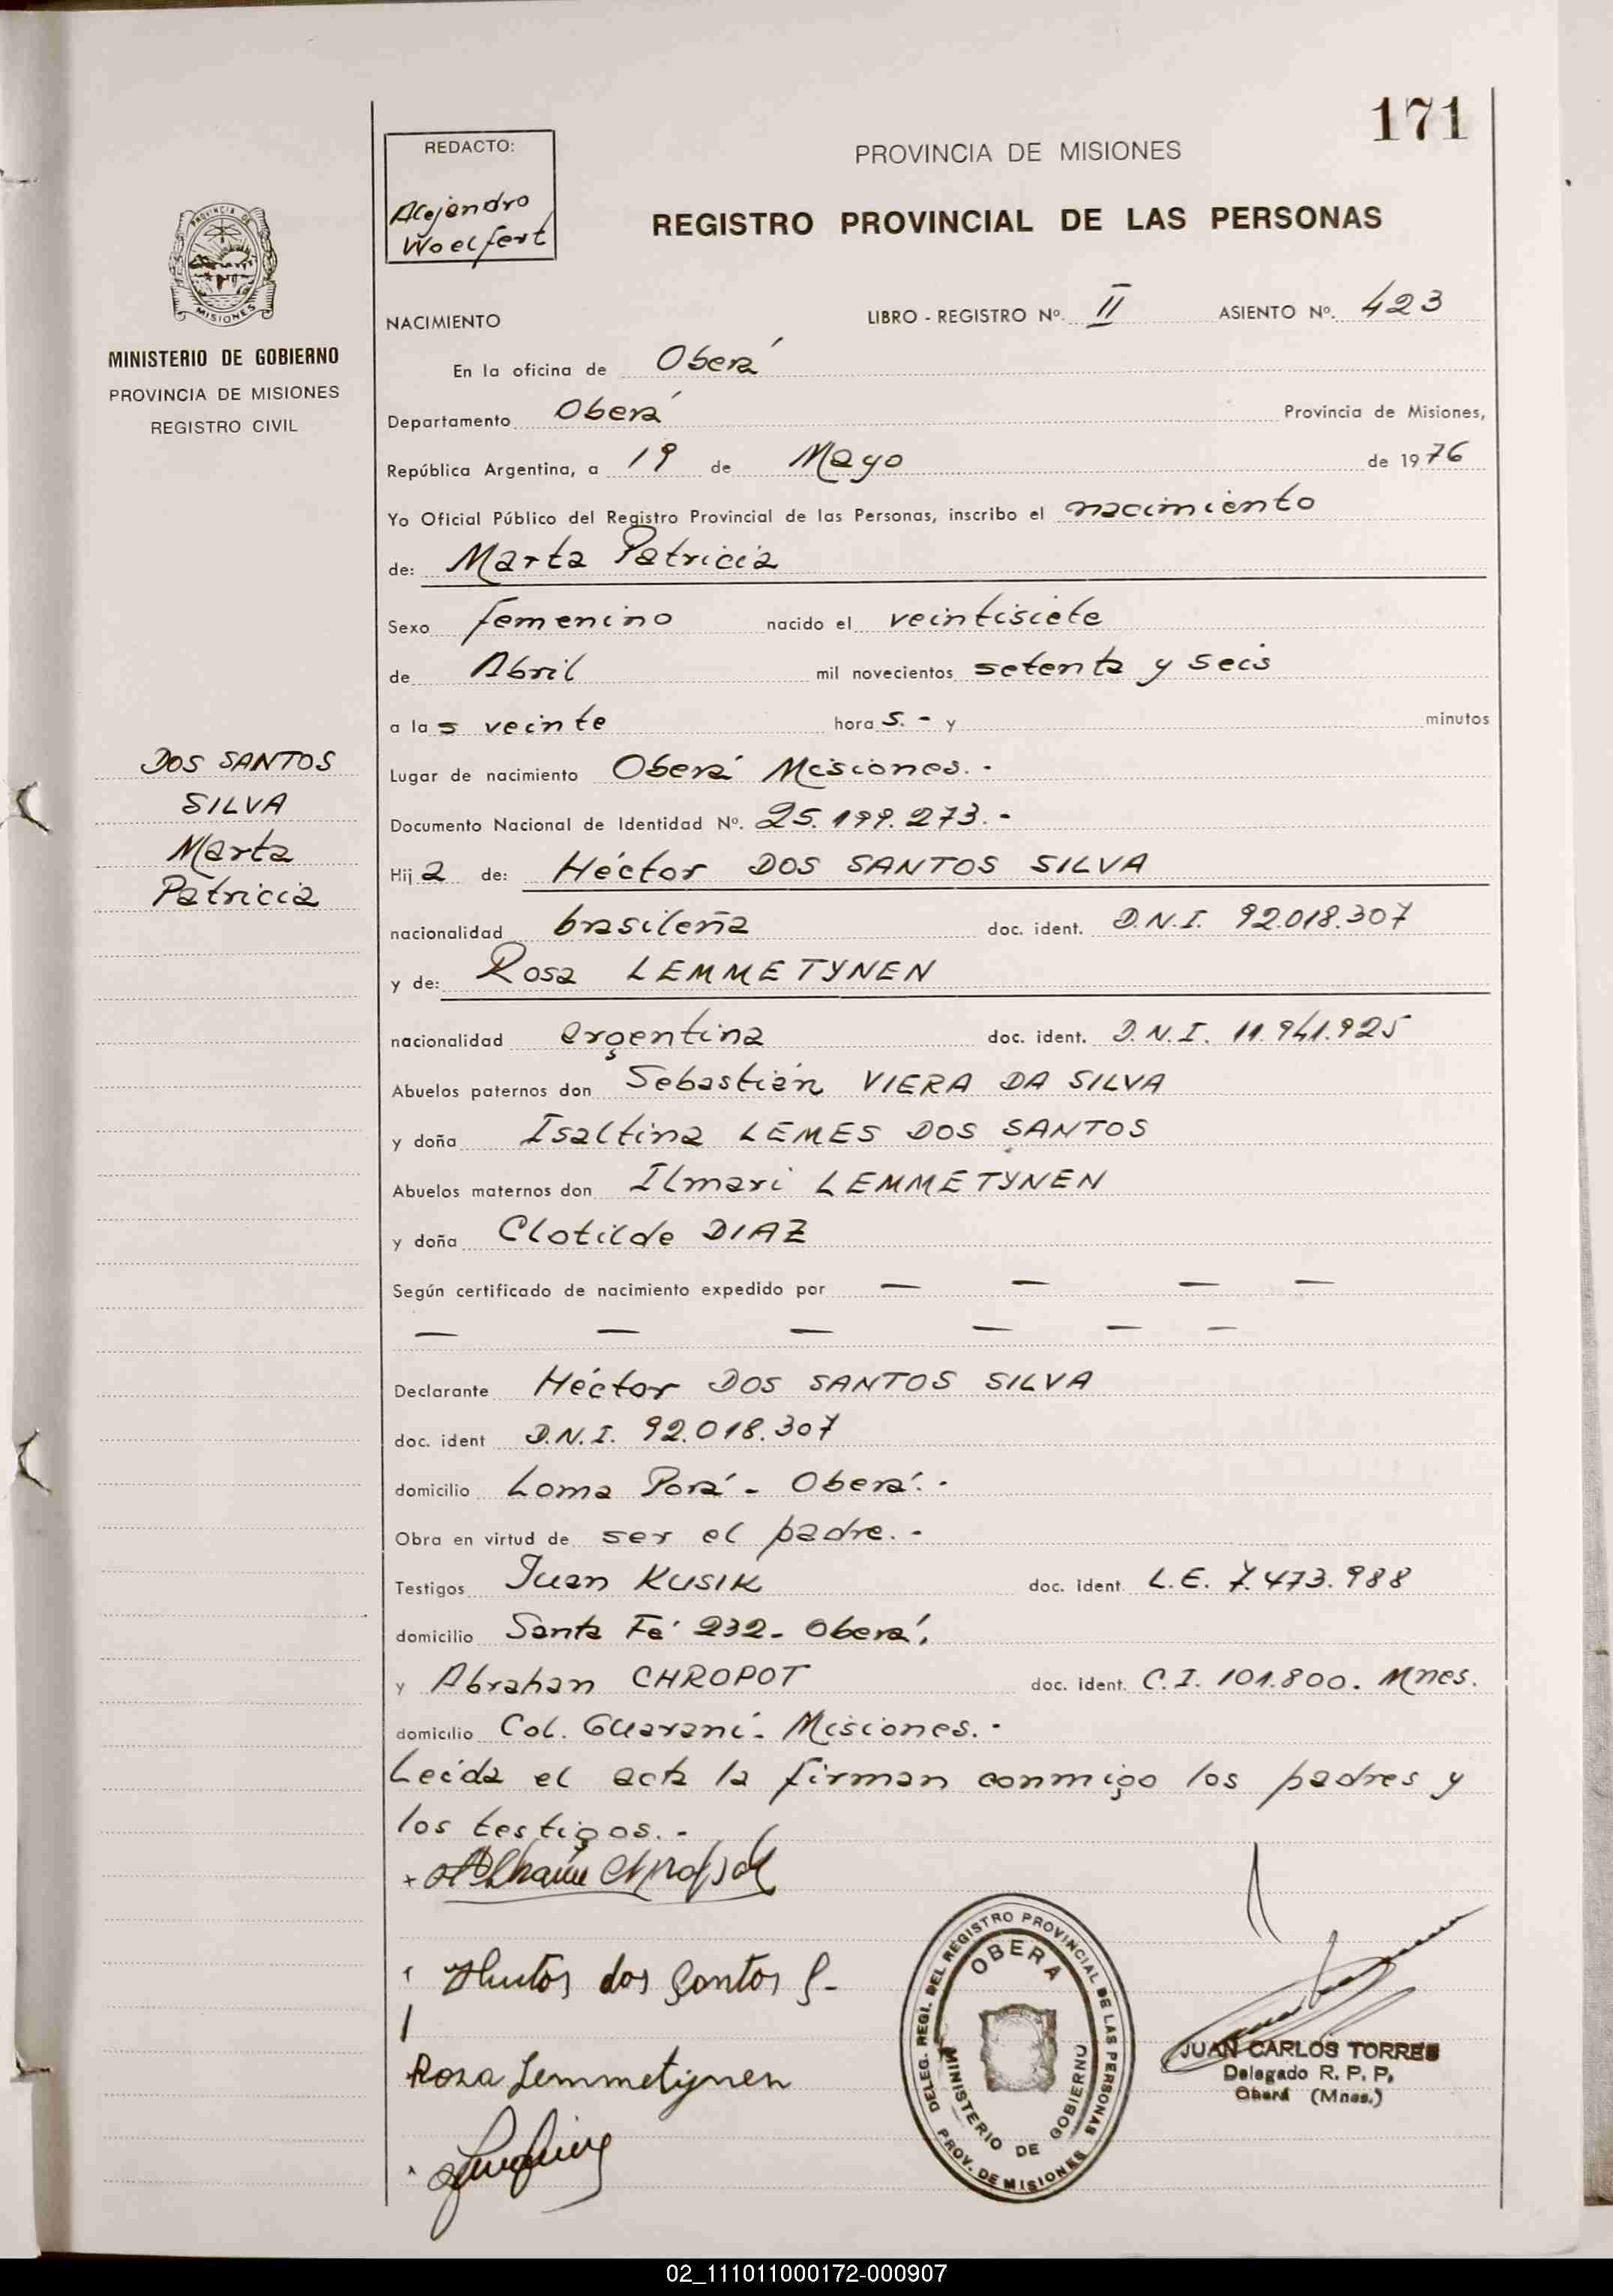 171
REDACTO:
Alejandro
Woelfert
PROVINCIA DE MISIONES
REGISTRO PROVINCIAL DE LAS PERSONAS
PROVINCIA DE
MISIONES
MINISTERIO DE GOBIERNO
PROVINCIA DE MISIONES
REGISTRO CIVIL
NACIMIENTO LIBRO - REGISTRO Nº. II ASIENTO Nº. 423
En la oficina de Oberá
Departamento Oberá Provincia de Misiones,
República Argentina, a 19 de Mayo de 1976
Yo Oficial Público del Registro Provincial de las Personas, inscribo el nacimiento
de: Marta Patricia
Sexo femenino nacido el veintisiete
de Abril mil novecientos setenta y seis
a las veinte hora s. - y minutos
DOS SANTOS
SILVA
Marta
Patricia
Lugar de nacimiento Oberá Misiones. -
Documento Nacional de Identidad Nº. 25.199.273. -
Hija de: Héctor DOS SANTOS SILVA
nacionalidad brasileña doc. ident. D.N.I. 92.018.307
y de: Rosa LEMMETYNEN
nacionalidad argentina doc. ident. D.N.I. 11.941.925
Abuelos paternos don Sebastián VIERA DA SILVA
y doña Isaltina LEMES DOS SANTOS
Abuelos maternos don Ilmari LEMMETYNEN
y doña Clotilde DIAZ
Según certificado de nacimiento expedido por — — — —
— — — — — —
Declarante Héctor DOS SANTOS SILVA
doc. ident D.N.I. 92.018.307
domicilio Loma Porá - Oberá. -
Obra en virtud de ser el padre. -
Testigos Juan KUSIK doc. ident L.E. 7.473.988
domicilio Santa Fé 232 - Oberá.
y Abrahan CHROPOT doc. ident. C.I. 101.800. Mnes.
domicilio Col. Guaraní - Misiones. -
Leída el acta la firman conmigo los padres y
los testigos. -
dos Santos S-
Rosa Lemmetynen
DELEG. REGI. DEL REGISTRO PROVINCIAL DE LAS PERSONAS
OBERA
MINISTERIO DE GOBIERNO
PROV. DE MISIONES
JUAN CARLOS TORRES
Delegado R. P. P.
Oberá (Mnes.)
02_111011000172-000907